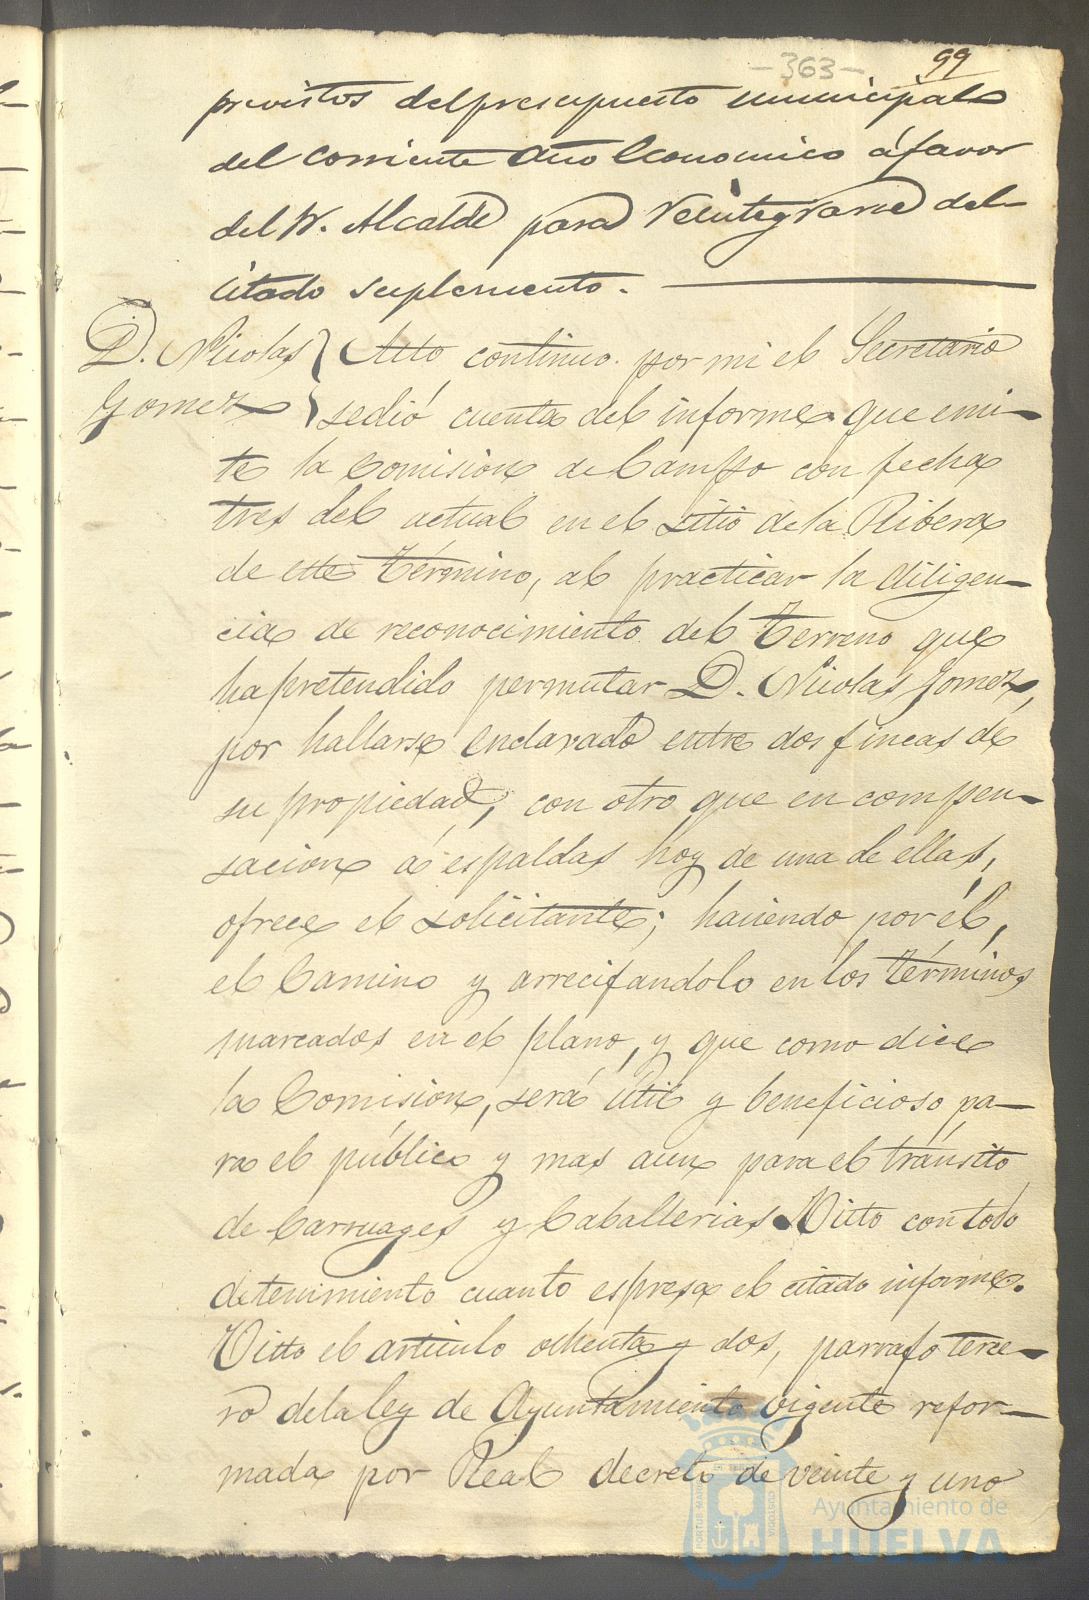 -363-
99
previstos del presupuesto municipal
del corriente año Economico á favor
del Sr. Alcalde para reintegrarse del
citado suplemento.
D. Nicolas
Gomez
Acto continuo por mi el Secretario
se dió cuenta del informe que emi-
te la Comision de Campo con fecha
tres del actual en el sitio de la Ribera
de este término, al practicar la diligen-
cia de reconocimiento del terreno que
ha pretendido permutar D. Nicolas Gomez,
por hallarse enclavado entre dos fincas de
su propiedad, con otro que en compen-
sacion á espaldas hoy de una de ellas,
ofrece el solicitante; haciendo por él,
el Camino y arrecifandolo en los términos
marcados en el plano, y que como dice
la Comision, será útil y beneficioso pa-
ra el público y mas aun para el tránsito
de Carruages y Caballerias. Visto con todo
detenimiento cuanto espresa el citado informe.
Visto el articulo ochenta y dos, parrafo terce-
ro de la ley de Ayuntamiento vigente refor-
mada por Real decreto de veinte y uno
PORTUS MARIS
CUSTODIA
Ayuntamiento de
HUELVA